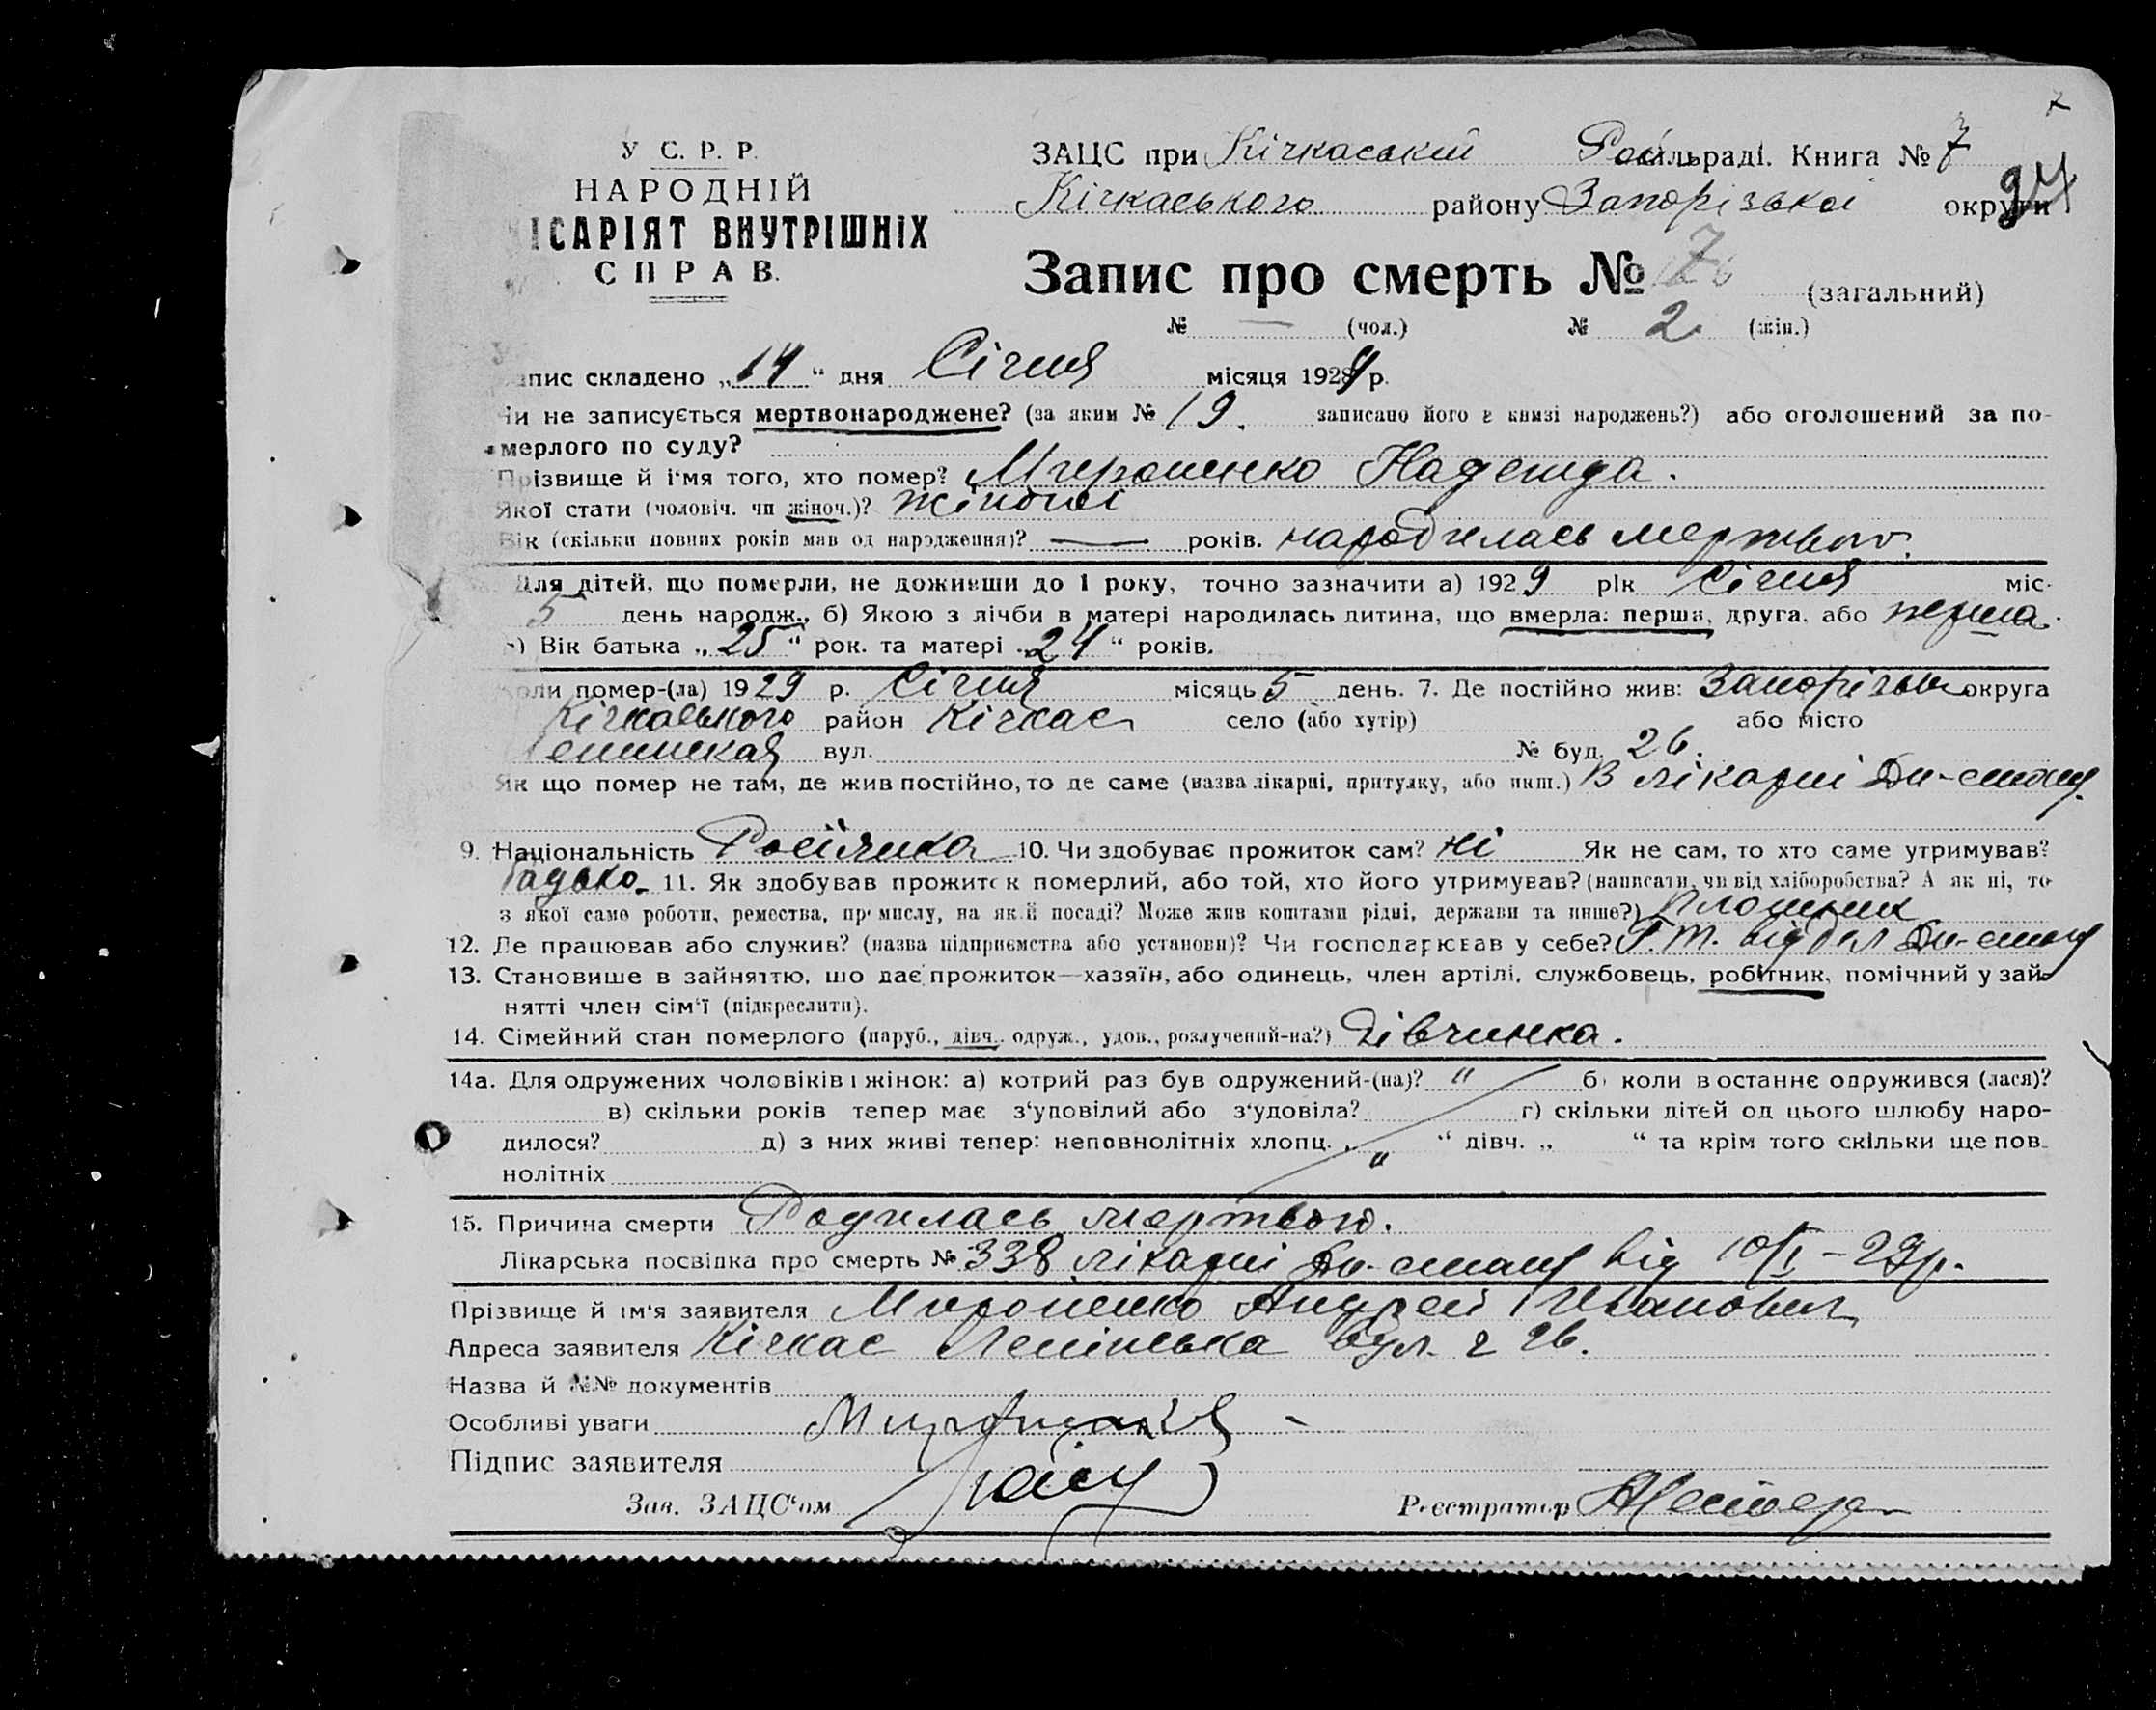 У С. Р. Р.
НАРОДНІЙ
ІСАРІЯТ ВНУТРІШНІХ
СПРАВ.
ЗАЦС при Кічкаській Сільраді. Книга № 7
Кічкаського району Запорізької округи
94
Запис про смерть № 7 (загальний)
№ — (чол.) № 2 (жін.)
апис складено „14“ дня Січня місяця 1929 р.
Чи не записується мертвонароджене? (за яким № 19. записано його в книзі народжень?) або оголошений за по-
мерлого по суду?
Прізвище й і'мя того, хто помер? Мироненко Надежда.
Якої стати (чоловіч. чи жіноч.)? жіночої
Вік (скільки повних років мав од народження)? — років. народилась мертвою.
Для дітей, що померли, не доживши до 1 року, точно зазначити а) 1929 рік Січня міс.
5 день народж., б) Якою з лічби в матері народилась дитина, що вмерла: перша, друга, або перша.
) Вік батька „25“ рок. та матері „24“ років.
Коли помер-(ла) 1929 р. Січня місяць 5 день. 7. Де постійно жив: Запорізька округа
Кічкаського район Кічкас село (або хутір) або місто
Ленинская вул. № буд. 26.
Як що помер не там, де жив постійно, то де саме (назва лікарні, притулку, або инш.) В лікарні Дн-стану.
9. Національність Росіянка 10. Чи здобуває прожиток сам? Ні Як не сам, то хто саме утримував?
Батько. 11. Як здобував прожиток померлий, або той, хто його утримував? (написати, чи від хліборобства? А як ні, то
з якої саме роботи, ремества, промислу, на якій посаді? Може жив коштами рідні, держави та инше?) Плотник
12. Де працював або служив? (назва підприємства або установи)? Чи господарював у себе? Г.Т. відділ Дн-стану
13. Становище в зайняттю, що дає прожиток—хазяїн, або одинець, член артілі, службовець, робітник, помічний у зай-
нятті член сім'ї (підкреслити).
14. Сімейний стан померлого (паруб., дівч. одруж., удов., розлучений-на?) Дівчинка.
14а. Для одружених чоловіків і жінок: а) котрий раз був одружений-(на)? " б) коли востаннє одружився (лася)?
в) скільки років тепер має з'уповілий або з'удовіла? г) скільки дітей од цього шлюбу наро-
дилося? д) з них живі тепер: неповнолітніх хлопц. „ “ дівч. „ “ та крім того скільки ще пов-
нолітніх "
15. Причина смерти Родилась мертвою.
Лікарська посвідка про смерть № 338 лікарні Дн-стану від 10/I – 29р.
Прізвище й ім'я заявителя Мироненко Андрей Иванович
Адреса заявителя Кічкас Ленінська вул. 26.
Назва й №№ документів
Особливі уваги
Підпис заявителя
Зав. ЗАЦС'ом
Реєстратор